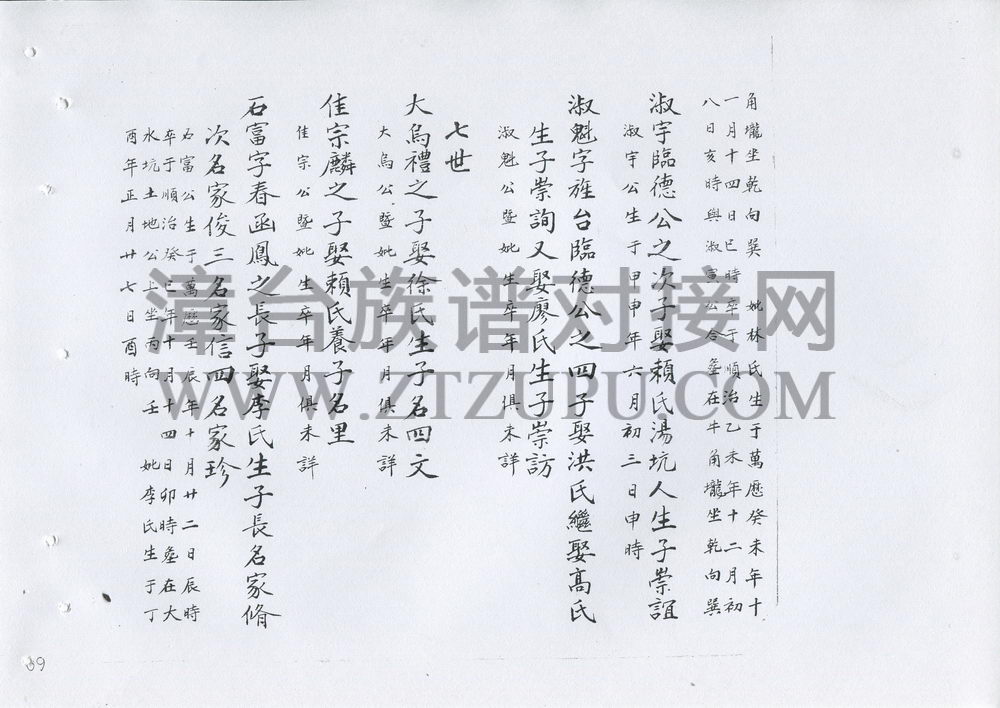 角壠坐乾向巽 妣林氏生于萬歷癸未年十
一月十四日巳時卒于順治乙未年十二月初
八日亥時與淑富公合塟在牛角壠坐乾向巽
淑宇臨德公之次子娶賴氏湯坑人生子崇誼
淑宇公生于甲申年六月初三日申時
淑魁字旌台臨德公之四子娶洪氏繼娶高氏
生子崇詢又娶廖氏生子崇訪
淑魁公暨妣生卒年月俱未詳
七世
大烏禮之子娶徐氏生子名四文
大烏公暨妣生卒年月俱未詳
佳宗麟之子娶賴氏養子名里
佳宗公暨妣生卒年月俱未詳
石富字春函鳳之長子娶李氏生子長名家脩
次名家俊三名家信四名家珍
石富公生于萬歷壬辰年十月廿二日辰時
卒于順治癸巳年十月十四日卯時塟在大
水坑土地公上坐丙向壬 妣李氏生于丁
酉年正月廿七日酉時
漳台族谱对接网
WWW.ZTZUPU.COM
69